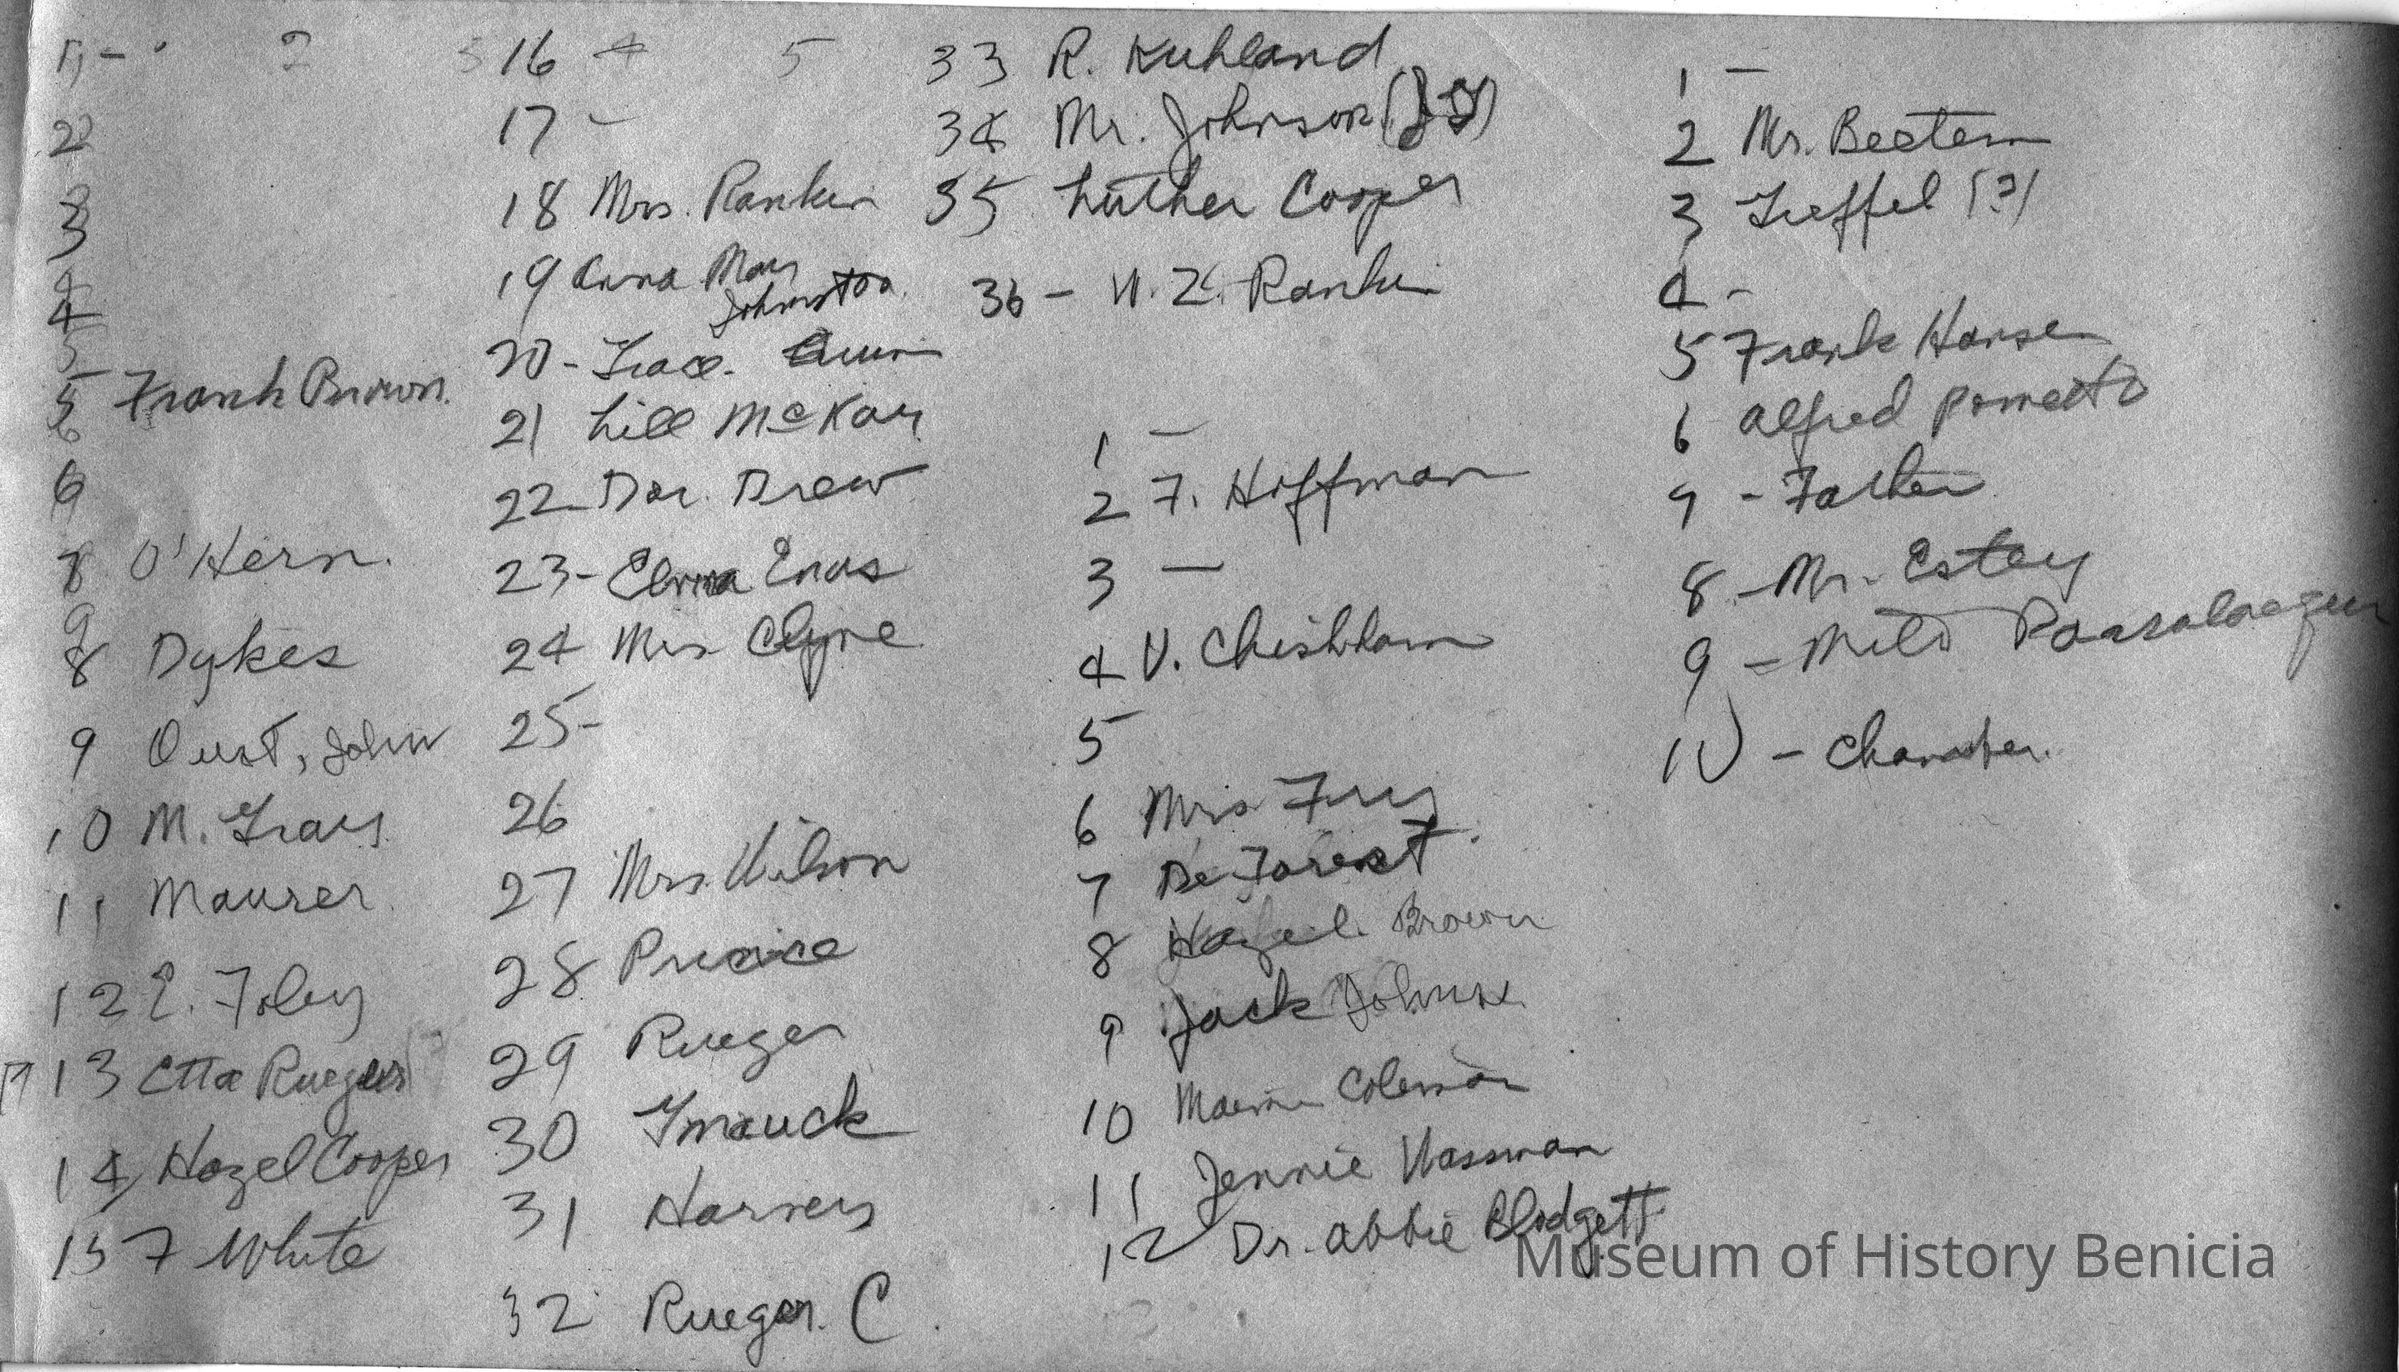 1 -
2
3
4
5 Frank Brown.
6
8 O'Hern.
8 Dykes
9 Oust, John
10 M. Gray.
11 Maurer.
12 E. Foley
13 Etta Rueger
14 Hazel Cooper
15 F White
16
17 -
18 Mrs. Rankin
19 Anna May
Johnston.
20 - Grace.
21 Lill McKay
22 - Dor. Drew
23 - Elma Enos
24 Mrs Clyne
25 -
26
27 Mrs. Wilson
28
29 Rueger
30 Gmauck
31 Harvey
32 Rueger. C.
33 R. Kuhland
34 Mr. Johnson
35 Luther Cooper
36 - W. L. Rankin
1 -
2 F. Hoffman
3 -
4 V. Chishham
5
6 Mrs Frey
7 De Forest.
8 Hazel. Brown
9 Jack
10 Coleman
11 Jennie Wassman
12 Dr. Abbie Blodgett
1 -
2 Mr. Beetem
3 (?)
4 -
5 Frank Hansen
6 Alfred
9 - Father
8 - Mr. Estey
9 -
10 -
Museum of History Benicia